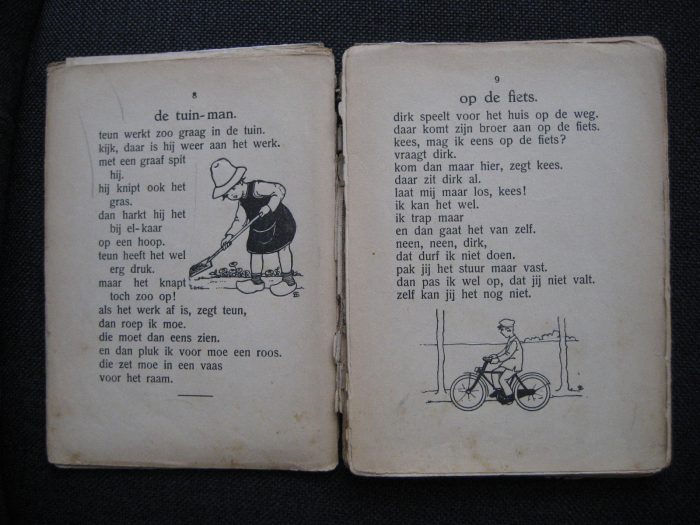 8
de tuin-man.
teun werkt zoo graag in de tuin.
kijk, daar is hij weer aan het werk.
met een graaf spit
hij.
hij knipt ook het
gras.
dan harkt hij het
bij el-kaar
op een hoop.
teun heeft het wel
erg druk.
maar het knapt
toch zoo op!
als het werk af is, zegt teun,
dan roep ik moe.
die moet dan eens zien.
en dan pluk ik voor moe een roos.
die zet moe in een vaas
voor het raam.
9
op de fiets.
dirk speelt voor het huis op de weg.
daar komt zijn broer aan op de fiets.
kees, mag ik eens op de fiets?
vraagt dirk.
kom dan maar hier, zegt kees.
daar zit dirk al.
laat mij maar los, kees!
ik kan het wel.
ik trap maar
en dan gaat het van zelf.
neen, neen, dirk,
dat durf ik niet doen.
pak jij het stuur maar vast.
dan pas ik wel op, dat jij niet valt.
zelf kan jij het nog niet.